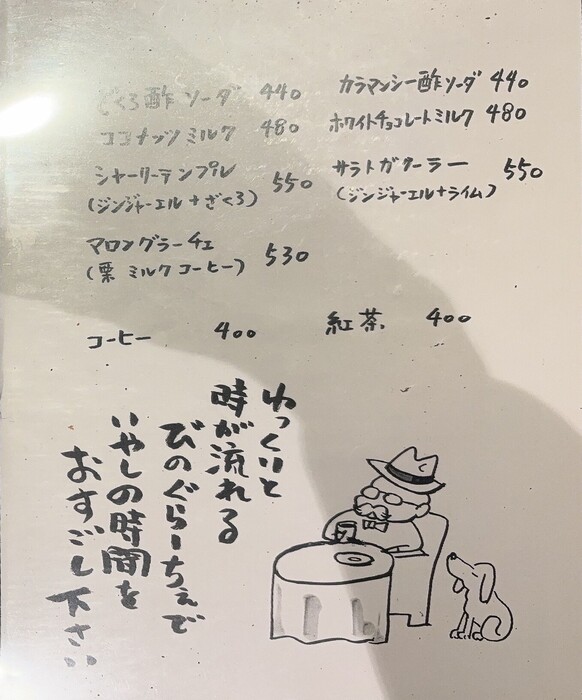 ざくろ酢ソーダ 440
ココナッツミルク 480
シャーリーテンプル 550
(ジンジャーエル+ざくろ)
マロングラーチェ 530
(栗 ミルクコーヒー)
コーヒー 400
カラマンシー酢ソーダ 440
ホワイトチョコレートミルク 480
サラトガクーラー 550
(ジンジャーエル+ライム)
紅茶 400
ゆっくりと
時が流れる
びのぐらーちぇで
いやしの時間を
おすごし下さい